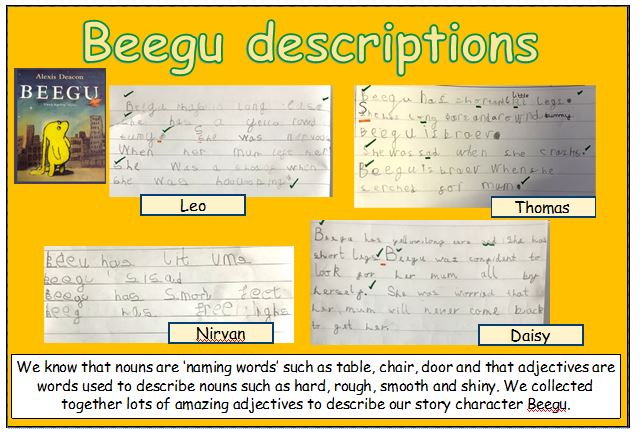 Beegu descriptions
Alexis Deacon
BEEGU
Beegu has long
She has a round
tummy. She was nervous
When her mum left her
She was a when
She was
Leo
Beegu has little legs.
She has long ears and a round tummy
Beegu is braev.
She was sad when she crashd.
Beegu is braev When she
serched for mum.
Thomas
has
Beegu has feet
has
Nirvan
Beegu has yellow long ears and She has
short legs. Beegu was confident to
look for her mum all by
herself. She was worried that
her mum will never come back
to get her.
Daisy
We know that nouns are ‘naming words’ such as table, chair, door and that adjectives are
words used to describe nouns such as hard, rough, smooth and shiny. We collected
together lots of amazing adjectives to describe our story character Beegu.